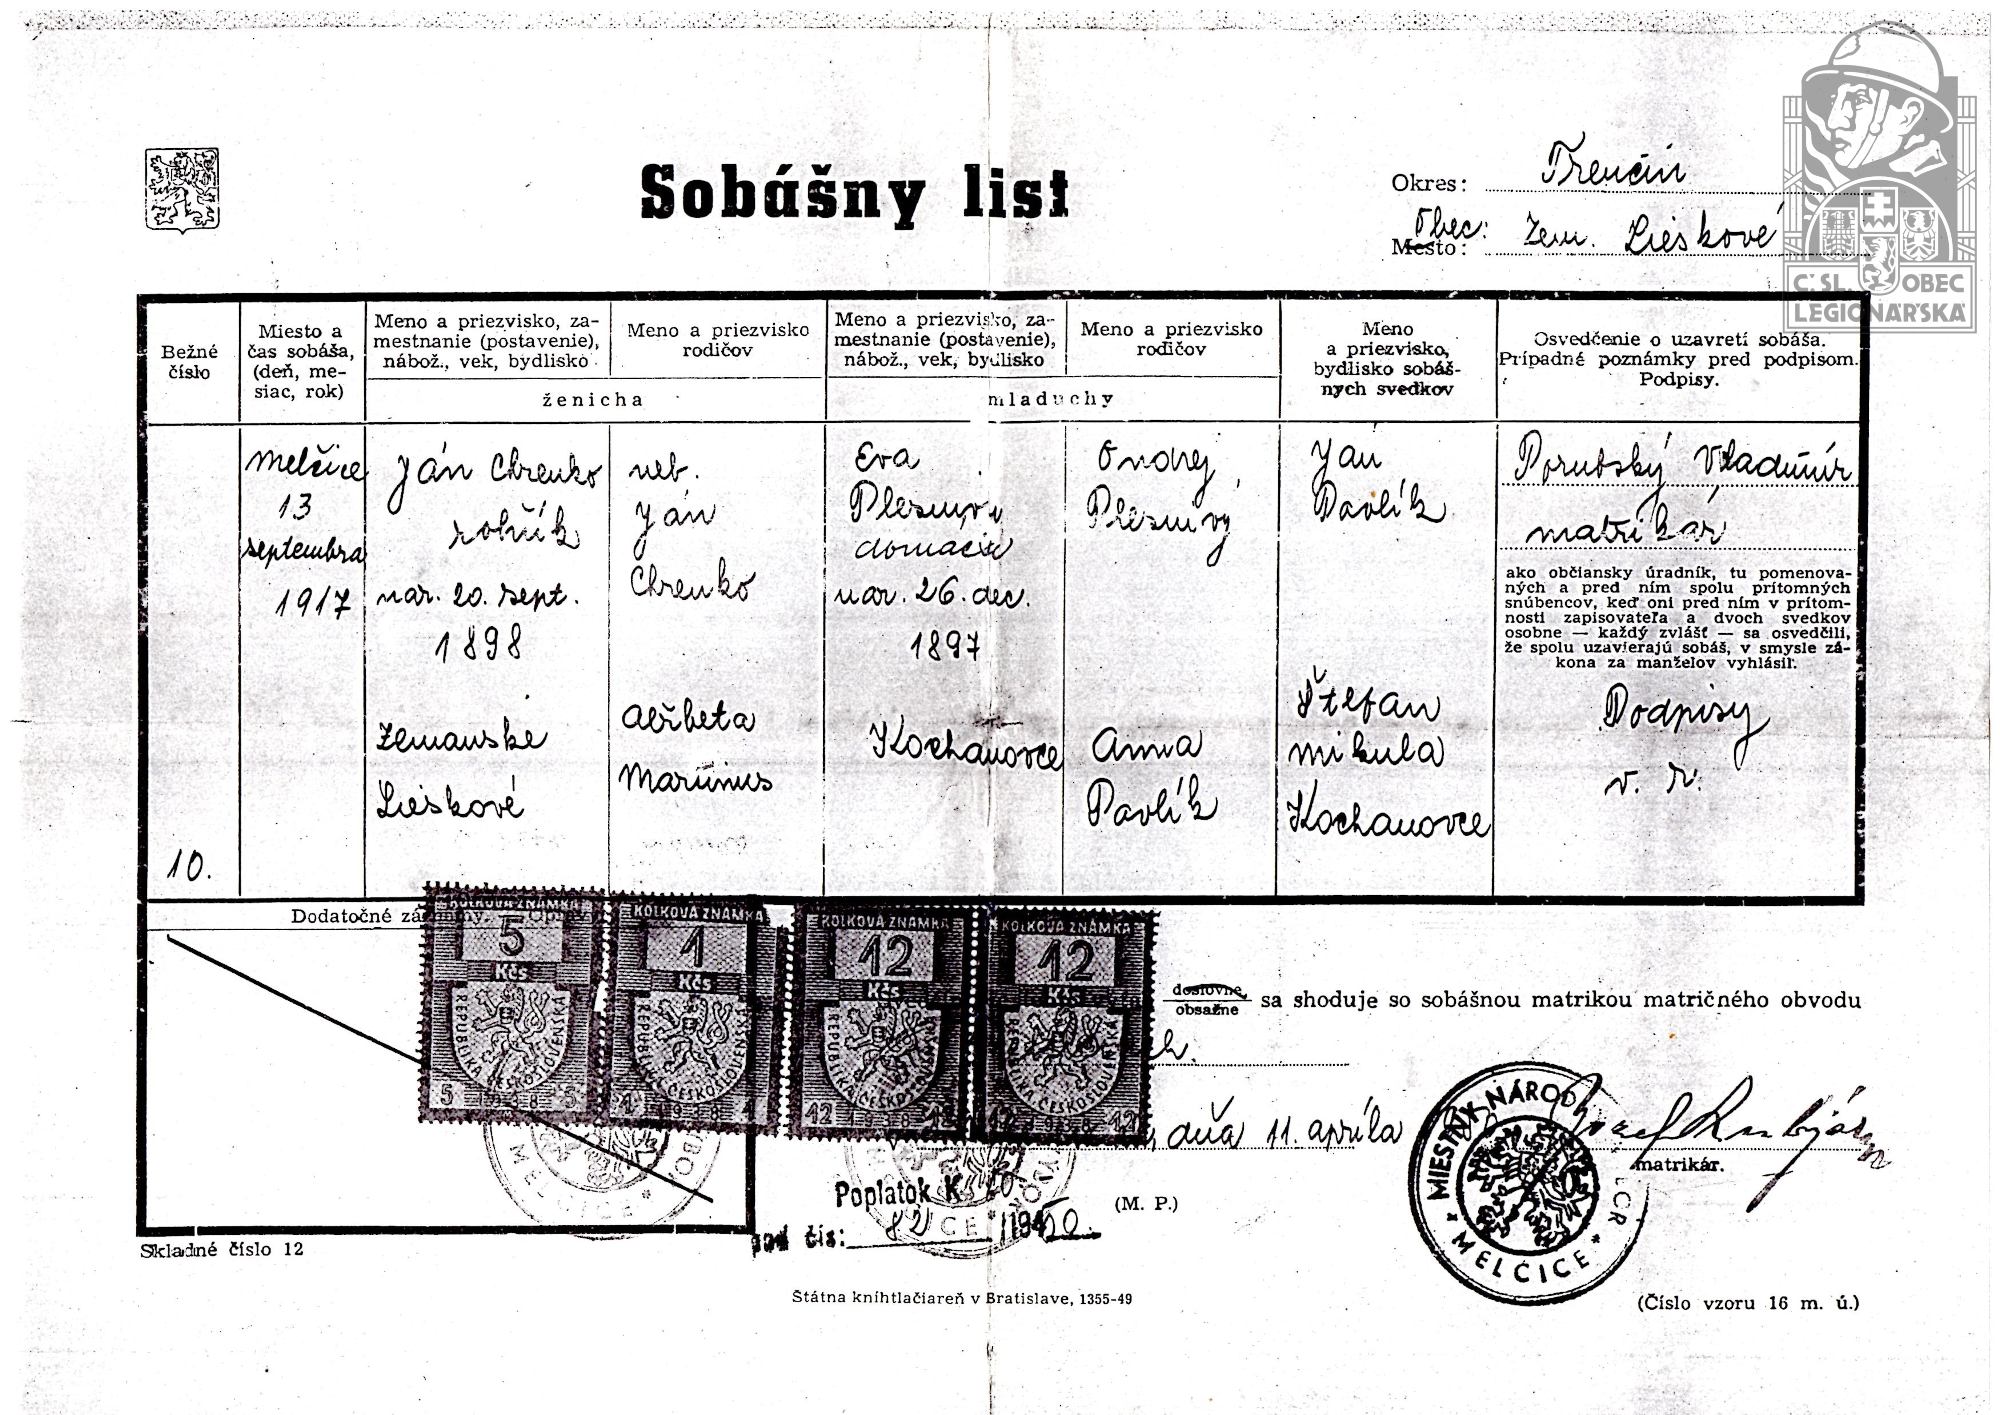 Sobášny list
Okres: Trenčín
Obec:
Mesto: Zem. Lieskové
Č. SL. OBEC
LEGIONÁŘSKÁ
Bežné
číslo
Miesto a
čas sobáša,
(deň, me-
siac, rok)
Meno a priezvisko, za-
mestnanie (postavenie),
nábož., vek, bydlisko
Meno a priezvisko
rodičov
ženicha
Meno a priezvisko, za-
mestnanie (postavenie),
nábož., vek, bydlisko
Meno a priezvisko
rodičov
mladuchy
Meno
a priezvisko,
bydlisko sobáš-
nych svedkov
Osvedčenie o uzavretí sobáša.
Prípadné poznámky pred podpisom.
Podpisy.
10.
Melčice
13
septembra
1917
Ján Chrenko
roľník
nar. 20. sept.
1898
Zemanske
Lieskové
neb.
Ján
Chrenko
Alžbeta
Marinius
Eva
domáca
nar. 26. dec.
1897
Kochanovce
Ondrej
Anna
Pavlík
Ján
Pavlík
Štefan
Mikula
Kochanovce
Porubský Vladimír
matrikár
ako občiansky úradník, tu pomenova-
ných a pred ním spolu prítomných
snúbencov, keď oni pred ním v prítom-
nosti zapisovateľa a dvoch svedkov
osobne — každý zvlášť — sa osvedčili,
že spolu uzavierajú sobáš, v smysle zá-
kona za manželov vyhlásil.
Podpisy
v. r.
Dodatočné
KOLKOVÁ ZNÁMKA
5
Kčs
REPUBLIKA ČESKOSLOVENSKÁ
5 1938 5
KOLKOVÁ ZNÁMKA
1
Kčs
REPUBLIKA ČESKOSLOVENSKÁ
1 1938 1
KOLKOVÁ ZNÁMKA
12
Kčs
REPUBLIKA ČESKOSLOVENSKÁ
12 1938 12
KOLKOVÁ ZNÁMKA
12
Kčs
REPUBLIKA ČESKOSLOVENSKÁ
12 1938 12
doslovne
obsažne sa shoduje so sobášnou matrikou matričného obvodu
dňa 11. apríla
matrikár.
MIESTNY NÁROD
* MELČICE *
Poplatok K
čís: 82 1950.
(M. P.)
MELČICE
Skladné číslo 12
Štátna kníhtlačiareň v Bratislave, 1355-49
(Číslo vzoru 16 m. ú.)